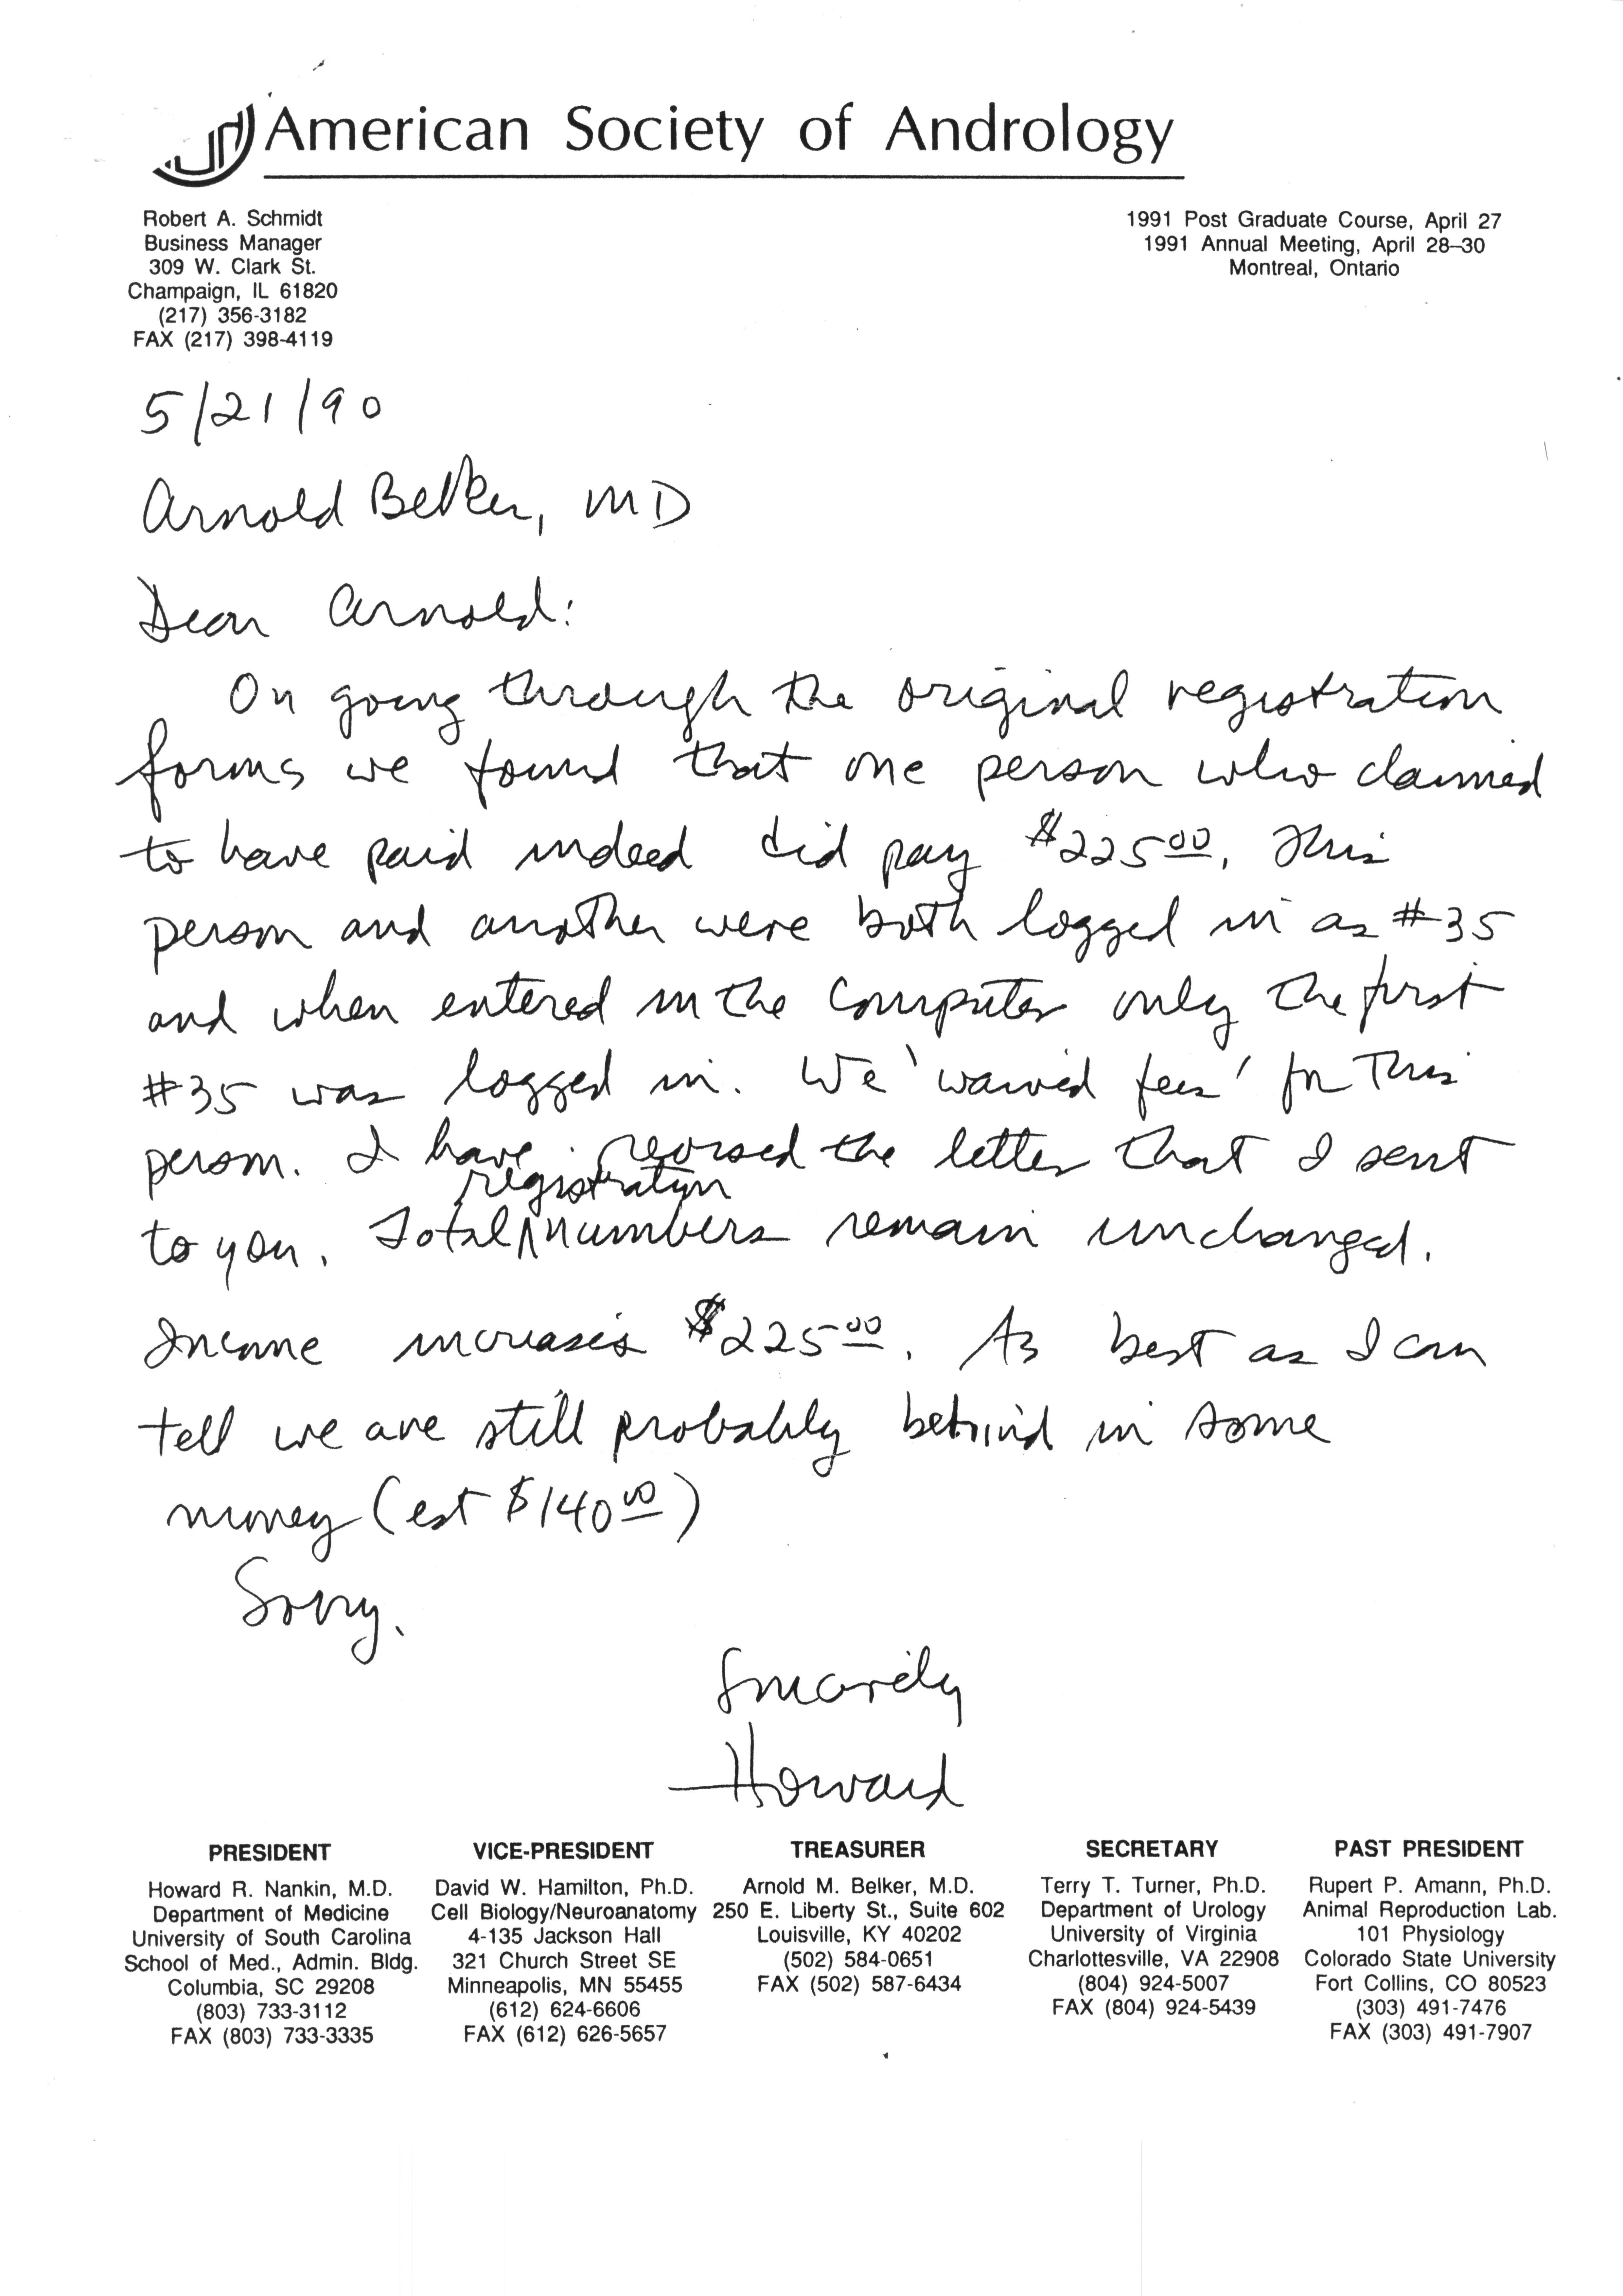 American Society of Andrology
Robert A. Schmidt
Business Manager
309 W. Clark St.
Champaign, IL 61820
(217) 356-3182
FAX (217) 398-4119
1991 Post Graduate Course, April 27
1991 Annual Meeting, April 28–30
Montreal, Ontario
5/21/90
Arnold Belker, MD
Dear Arnold:
On going through the original registration
forms we found that one person who claimed
to have paid indeed did pay $225.00. This
person and another were both logged in as #35
and when entered in the computer only the first
#35 was logged in. We 'waived fees' for This
person. I have revised the letter that I sent
to you. Total registration numbers remain unchanged.
Income increases $225.00. As best as I can
tell we are still probably behind in some
money (est $140.00)
Sorry.
Sincerely
Howard
PRESIDENT
Howard R. Nankin, M.D.
Department of Medicine
University of South Carolina
School of Med., Admin. Bldg.
Columbia, SC 29208
(803) 733-3112
FAX (803) 733-3335
VICE-PRESIDENT
David W. Hamilton, Ph.D.
Cell Biology/Neuroanatomy
4-135 Jackson Hall
321 Church Street SE
Minneapolis, MN 55455
(612) 624-6606
FAX (612) 626-5657
TREASURER
Arnold M. Belker, M.D.
250 E. Liberty St., Suite 602
Louisville, KY 40202
(502) 584-0651
FAX (502) 587-6434
SECRETARY
Terry T. Turner, Ph.D.
Department of Urology
University of Virginia
Charlottesville, VA 22908
(804) 924-5007
FAX (804) 924-5439
PAST PRESIDENT
Rupert P. Amann, Ph.D.
Animal Reproduction Lab.
101 Physiology
Colorado State University
Fort Collins, CO 80523
(303) 491-7476
FAX (303) 491-7907